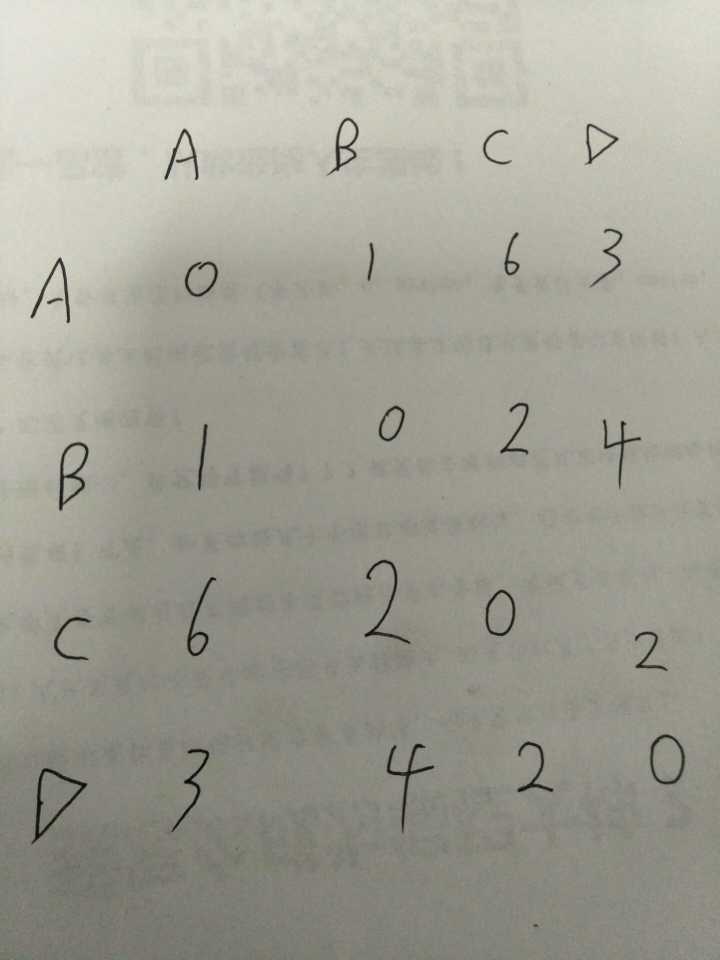 A B C D
A 0 1 6 3
B 1 0 2 4
C 6 2 0 2
D 3 4 2 0